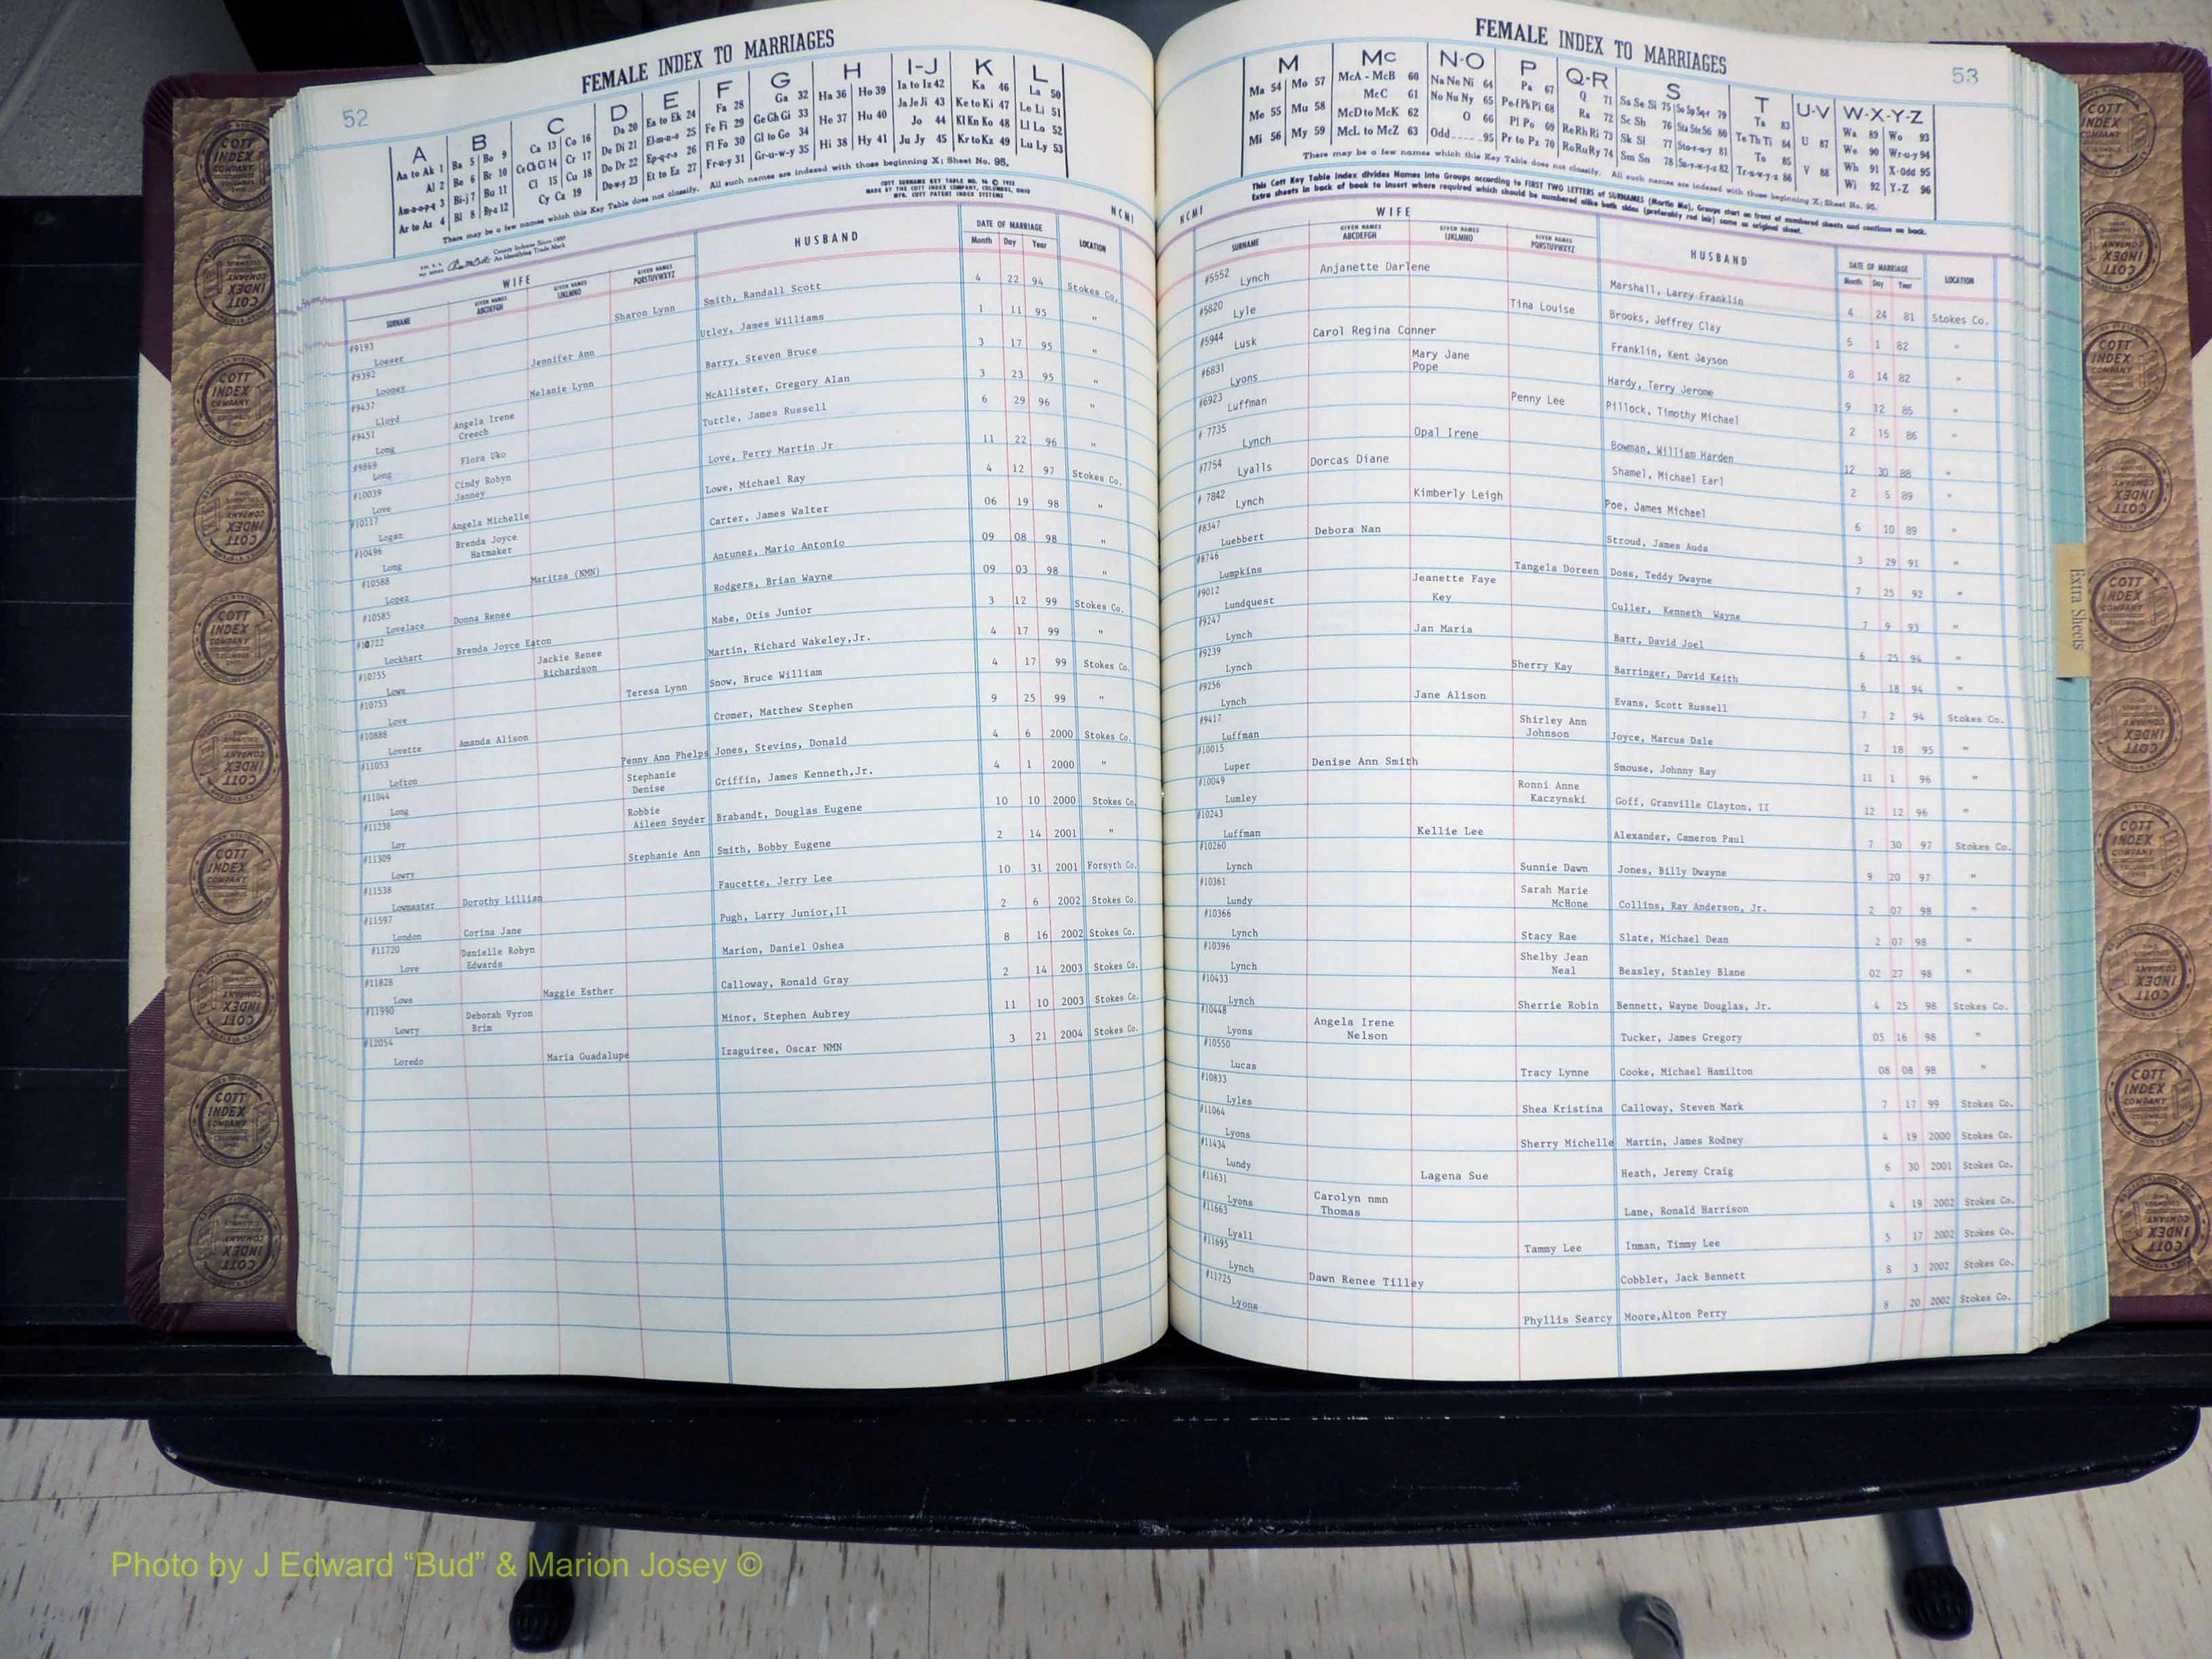 52
FEMALE INDEX TO MARRIAGES
A B C D E F G H I-J K L
Aa to Ak 1 Ba 5 Bo 9 Ca 13 Co 16 Da 20 Ea to Ek 24 Fa 28 Ga 32 Ha 36 Ho 39 Ia to Iz 42 Ka 46 La 50
Al 2 Be 6 Br 10 Ce Ch Ci 14 Cr 17 De Di 21 El-m-n-o 25 Fe Fi 29 Ge Gh Gi 33 He 37 Hu 40 Ja Je Ji 43 Ke to Ki 47 Le Li 51
Am-n-o-p-q 3 Bi-j 7 Bu 11 Cl 15 Cu 18 Do Dr 22 Ep-q-r-s 26 Fl Fo 30 Gl to Go 34 Hi 38 Hy 41 Jo 44 Kl Kn Ko 48 Ll Lo 52
Ar to Az 4 Bl 8 By-z 12 Cy Cz 19 Du-w-y 23 Et to Ez 27 Fr-u-y 31 Gr-u-w-y 35 Ju Jy 45 Kr to Kz 49 Lu Ly 53
There may be a few names which this Key Table does not classify. All such names are indexed with those beginning X; Sheet No. 95.
COTT SURNAME KEY TABLE NO. 96 © 1952
MADE BY THE COTT INDEX COMPANY, COLUMBUS, OHIO
MFR. COTT PATENT INDEX SYSTEMS
County Indexes Since 1888
An Identifying Trade Mark
NCMI
WIFE HUSBAND DATE OF MARRIAGE LOCATION
SURNAME GIVEN NAMES ABCDEFGH GIVEN NAMES IJKLMNO GIVEN NAMES PQRSTUVWXYZ Month Day Year
#9193 Loeser Sharon Lynn Smith, Randall Scott 4 22 94 Stokes Co.
#9392 Looney Jennifer Ann Utley, James Williams 1 11 95 "
#9437 Lloyd Melanie Lynn Barry, Steven Bruce 3 17 95 "
#9451 Long Angela Irene Creech McAllister, Gregory Alan 3 23 95 "
#9869 Long Flora Uko Tuttle, James Russell 6 29 96 "
#10039 Love Cindy Robyn Janney Love, Perry Martin Jr 11 22 96 "
#10117 Logan Angela Michelle Lowe, Michael Ray 4 12 97 Stokes Co.
#10496 Long Brenda Joyce Hatmaker Carter, James Walter 06 19 98 "
#10588 Lopez Maritza (NMN) Antunez, Mario Antonio 09 08 98 "
#10585 Lovelace Donna Renee Rodgers, Brian Wayne 09 03 98 "
#10722 Lockhart Brenda Joyce Eaton Mabe, Otis Junior 3 12 99 Stokes Co.
#10755 Lowe Jackie Renee Richardson Martin, Richard Wakeley,Jr. 4 17 99 "
#10753 Love Teresa Lynn Snow, Bruce William 4 17 99 Stokes Co.
#10888 Lovette Amanda Alison Cromer, Matthew Stephen 9 25 99 "
#11053 Lofton Penny Ann Phelps Jones, Stevins, Donald 4 6 2000 Stokes Co.
#11044 Long Stephanie Denise Griffin, James Kenneth,Jr. 4 1 2000 "
#11238 Loy Robbie Aileen Snyder Brabandt, Douglas Eugene 10 10 2000 Stokes Co
#11309 Lowry Stephanie Ann Smith, Bobby Eugene 2 14 2001 "
#11538 Lowmaster Dorothy Lillian Faucette, Jerry Lee 10 31 2001 Forsyth Co.
#11597 London Corina Jane Pugh, Larry Junior,II 2 6 2002 Stokes Co.
#11720 Love Danielle Robyn Edwards Marion, Daniel Oshea 8 16 2002 Stokes Co.
#11828 Lowe Maggie Esther Calloway, Ronald Gray 2 14 2003 Stokes Co.
#11990 Lowry Deborah Vyron Brim Minor, Stephen Aubrey 11 10 2003 Stokes Co.
#12054 Loredo Maria Guadalupe Izaguiree, Oscar NMN 3 21 2004 Stokes Co.
53
FEMALE INDEX TO MARRIAGES
M Mc N-O P Q-R S T U-V W-X-Y-Z
Ma 54 Mo 57 McA - McB 60 Na Ne Ni 64 Pa 67 Q 71 Sa Se Si 75 So Sp Sq-r 79 Ta 83 Wa 89 Wo 93
Me 55 Mu 58 McC 61 No Nu Ny 65 Pe-f Ph Pi 68 Ra 72 Sc Sh 76 Sta Ste Sti 80 Te Th Ti 84 U 87 We 90 Wr-u-y 94
Mi 56 My 59 McD to McK 62 O 66 Pl Po 69 Re Rh Ri 73 Sk Sl 77 Sto-r-u-y 81 To 85 V 88 Wh 91 X-Odd 95
McL to McZ 63 Odd 95 Pr to Pz 70 Ro Ru Ry 74 Sm Sn 78 Su-v-w-y-z 82 Tr-u-w-y-z 86 Wi 92 Y-Z 96
There may be a few names which this Key Table does not classify. All such names are indexed with those beginning X; Sheet No. 95.
This Cott Key Table Index divides Names into Groups according to FIRST TWO LETTERS of SURNAMES (Martin Ma), Groups start on front of numbered sheets and continue on back.
Extra sheets in back of book to insert where required which should be numbered alike both sides (preferably red ink) same as original sheet.
NCMI
WIFE HUSBAND DATE OF MARRIAGE LOCATION
SURNAME GIVEN NAMES ABCDEFGH GIVEN NAMES IJKLMNO GIVEN NAMES PQRSTUVWXYZ Month Day Year
#5552 Lynch Anjanette Darlene Marshall, Larry Franklin 4 24 81 Stokes Co.
#5820 Lyle Tina Louise Brooks, Jeffrey Clay 5 1 82 "
#5944 Lusk Carol Regina Conner Franklin, Kent Jayson 8 14 82 "
#6831 Lyons Mary Jane Pope Hardy, Terry Jerome 9 12 85 "
#6923 Luffman Penny Lee Pillock, Timothy Michael 2 15 86 "
# 7735 Lynch Opal Irene Bowman, William Harden 12 30 88 "
#7754 Lyalls Dorcas Diane Shamel, Michael Earl 2 5 89 "
# 7842 Lynch Kimberly Leigh Poe, James Michael 6 10 89 "
#8347 Luebbert Debora Nan Stroud, James Auda 3 29 91 "
#8746 Lumpkins Tangela Doreen Doss, Teddy Dwayne 7 25 92 "
#9012 Lundquest Jeanette Faye Key Culler, Kenneth Wayne 7 9 93 "
#9247 Lynch Jan Maria Barr, David Joel 6 25 94 "
#9239 Lynch Sherry Kay Barringer, David Keith 6 18 94 "
#9256 Lynch Jane Alison Evans, Scott Russell 7 2 94 Stokes Co.
#9417 Luffman Shirley Ann Johnson Joyce, Marcus Dale 2 18 95 "
#10015 Luper Denise Ann Smith Smouse, Johnny Ray 11 1 96 "
#10049 Lumley Ronni Anne Kaczynski Goff, Granville Clayton, II 12 12 96 "
#10243 Luffman Kellie Lee Alexander, Cameron Paul 7 30 97 Stokes Co.
#10260 Lynch Sunnie Dawn Jones, Billy Dwayne 9 20 97 "
#10361 Lundy Sarah Marie McHone Collins, Ray Anderson, Jr. 2 07 98 "
#10366 Lynch Stacy Rae Slate, Michael Dean 2 07 98 "
#10396 Lynch Shelby Jean Neal Beasley, Stanley Blane 02 27 98 "
#10433 Lynch Sherrie Robin Bennett, Wayne Douglas, Jr. 4 25 98 Stokes Co.
#10448 Lyons Angela Irene Nelson Tucker, James Gregory 05 16 98 "
#10550 Lucas Tracy Lynne Cooke, Michael Hamilton 08 08 98 "
#10833 Lyles Shea Kristina Calloway, Steven Mark 7 17 99 Stokes Co.
#11064 Lyons Sherry Michelle Martin, James Rodney 4 19 2000 Stokes Co.
#11434 Lundy Lagena Sue Heath, Jeremy Craig 6 30 2001 Stokes Co.
#11631 Lyons Carolyn nmn Thomas Lane, Ronald Harrison 4 19 2002 Stokes Co.
#11663 Lyall Tammy Lee Inman, Timmy Lee 5 17 2002 Stokes Co.
#11695 Lynch Dawn Renee Tilley Cobbler, Jack Bennett 8 3 2002 Stokes Co.
#11725 Lyons Phyllis Searcy Moore,Alton Perry 8 20 2002 Stokes Co.
Extra Sheets
COTT INDEX COMPANY
Photo by J Edward “Bud” & Marion Josey ©